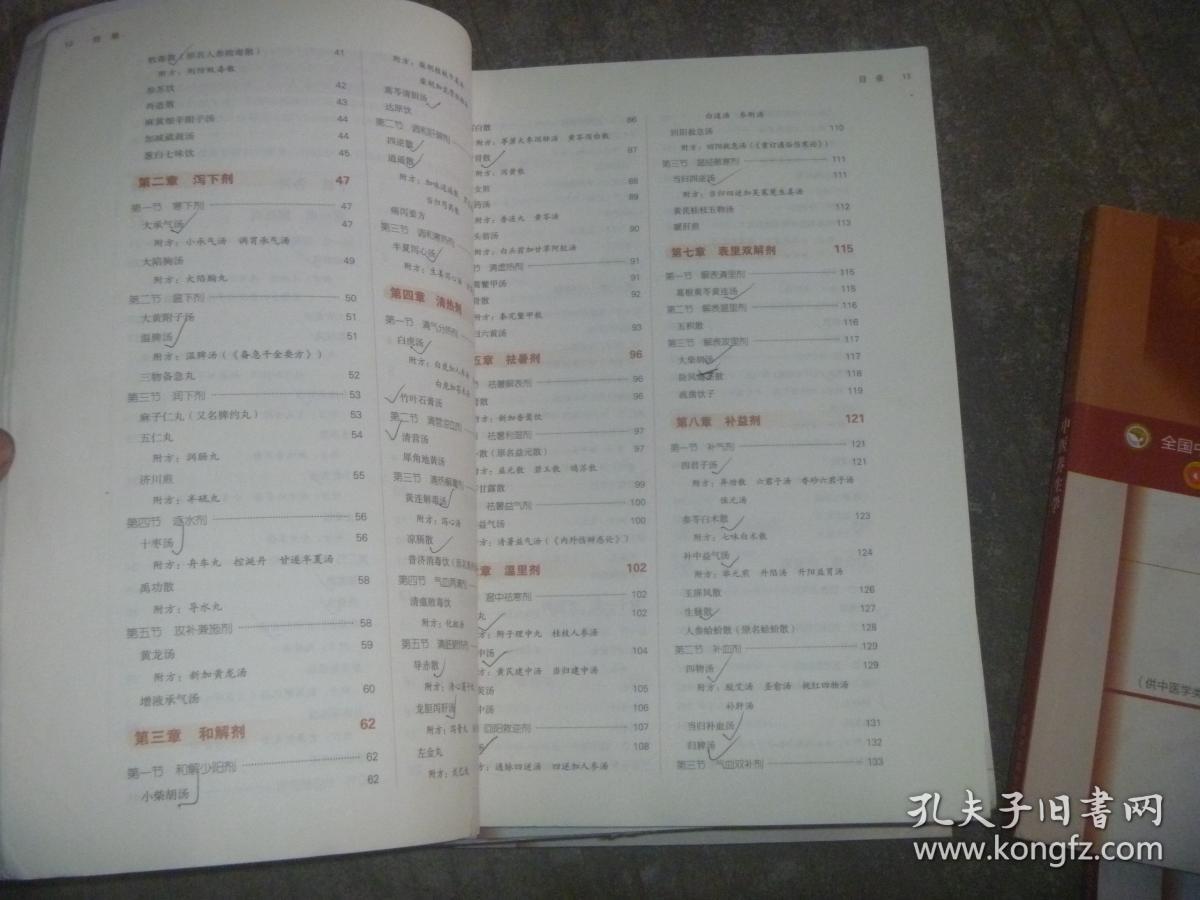 12 目 录
败毒散（原名人参败毒散） 41
附方：荆防败毒散
参苏饮 42
再造散 43
麻黄细辛附子汤 44
加减葳蕤汤 44
葱白七味饮 45
第二章 泻下剂 47
第一节 寒下剂 47
大承气汤 47
附方：小承气汤 调胃承气汤
大陷胸汤 49
附方：大陷胸丸
第二节 温下剂 50
大黄附子汤 51
温脾汤 51
附方：温脾汤（《备急千金要方》）
三物备急丸 52
第三节 润下剂 53
麻子仁丸（又名脾约丸） 53
五仁丸 54
附方：润肠丸
济川煎 55
附方：半硫丸
第四节 逐水剂 56
十枣汤 56
附方：舟车丸 控涎丹 甘遂半夏汤
禹功散 58
附方：导水丸
第五节 攻补兼施剂 58
黄龙汤 59
附方：新加黄龙汤
增液承气汤 60
第三章 和解剂 62
第一节 和解少阳剂 62
小柴胡汤 62
附方：柴胡桂枝干姜汤
蒿芩清胆汤
达原饮
第二节 调和肝脾剂
四逆散
逍遥散
附方：加味逍遥散
当归芍药散
痛泻要方
第三节 调和寒热剂
半夏泻心汤
附方：生姜泻心汤
第四章 清热剂
第一节 清气分热剂
白虎汤
附方：白虎加人参
白虎加苍术
竹叶石膏汤
第二节 清营凉血剂
清营汤
犀角地黄汤
第三节 清热解毒剂
黄连解毒汤
附方：泻心汤
凉膈散
普济消毒饮
第四节 气血两清剂
清瘟败毒饮
附方：化斑汤
第五节 清脏腑热剂
导赤散
附方：清心莲子
龙胆泻肝汤
附方：泻青丸
左金丸
附方：戊己丸
白散 86
附方：葶苈大枣泻肺汤 黄芩泻白散
胃散 87
附方：泻黄散
女煎 88
药汤 89
附方：香连丸 黄芩汤
头翁汤 90
附方：白头翁加甘草阿胶汤
节 清虚热剂 91
蒿鳖甲汤 91
骨散 92
附方：秦艽鳖甲散
归六黄汤 93
五章 祛暑剂 96
祛暑解表剂 96
薷散 96
附方：新加香薷饮
祛暑利湿剂 97
散（原名益元散） 97
附方：益元散 碧玉散 鸡苏散
甘露散 99
祛暑益气剂 100
益气汤 100
附方：清暑益气汤（《内外伤辨惑论》）
章 温里剂 102
温中祛寒剂 102
丸 102
附方：附子理中丸 桂枝人参汤
中汤 104
附方：黄芪建中汤 当归建中汤
萸汤 105
中汤 106
回阳救逆剂 107
108
附方：通脉四逆汤 四逆加人参汤
目 录 13
白通汤 参附汤
回阳救急汤 110
附方：回阳救急汤（《重订通俗伤寒论》）
第三节 温经散寒剂 111
当归四逆汤 111
附方：当归四逆加吴茱萸生姜汤
黄芪桂枝五物汤 112
暖肝煎 113
第七章 表里双解剂 115
第一节 解表清里剂 115
葛根黄芩黄连汤 115
第二节 解表温里剂 116
五积散 116
第三节 解表攻里剂 117
大柴胡汤 117
118
疏凿饮子 119
第八章 补益剂 121
第一节 补气剂 121
四君子汤 121
附方：异功散 六君子汤 香砂六君子汤
保元汤
参苓白术散 123
附方：七味白术散
补中益气汤 124
附方：举元煎 升陷汤 升阳益胃汤
玉屏风散 126
生脉散 127
人参蛤蚧散（原名蛤蚧散） 128
第二节 补血剂 129
四物汤 129
附方：胶艾汤 圣愈汤 桃红四物汤
补肝汤
当归补血汤 131
归脾汤 132
第三节 气血双补剂 133
中医养生学
全国中
（供中医学类
孔夫子旧书网
www.kongfz.com